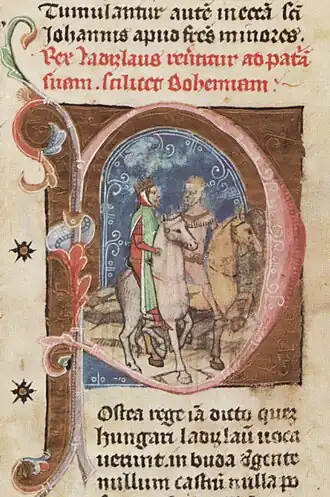 Tumulantur autē in ecc̄a sc̄i
Johannis apud fr̄es minores.
Rex ladizlaus reūtitur ad pat̄am
suam. scilicet Bohemiam:
POstea rege iā dicto quez
hungari ladizlaū uoca
uerunt. in buda degente
nullum castrū nulla po